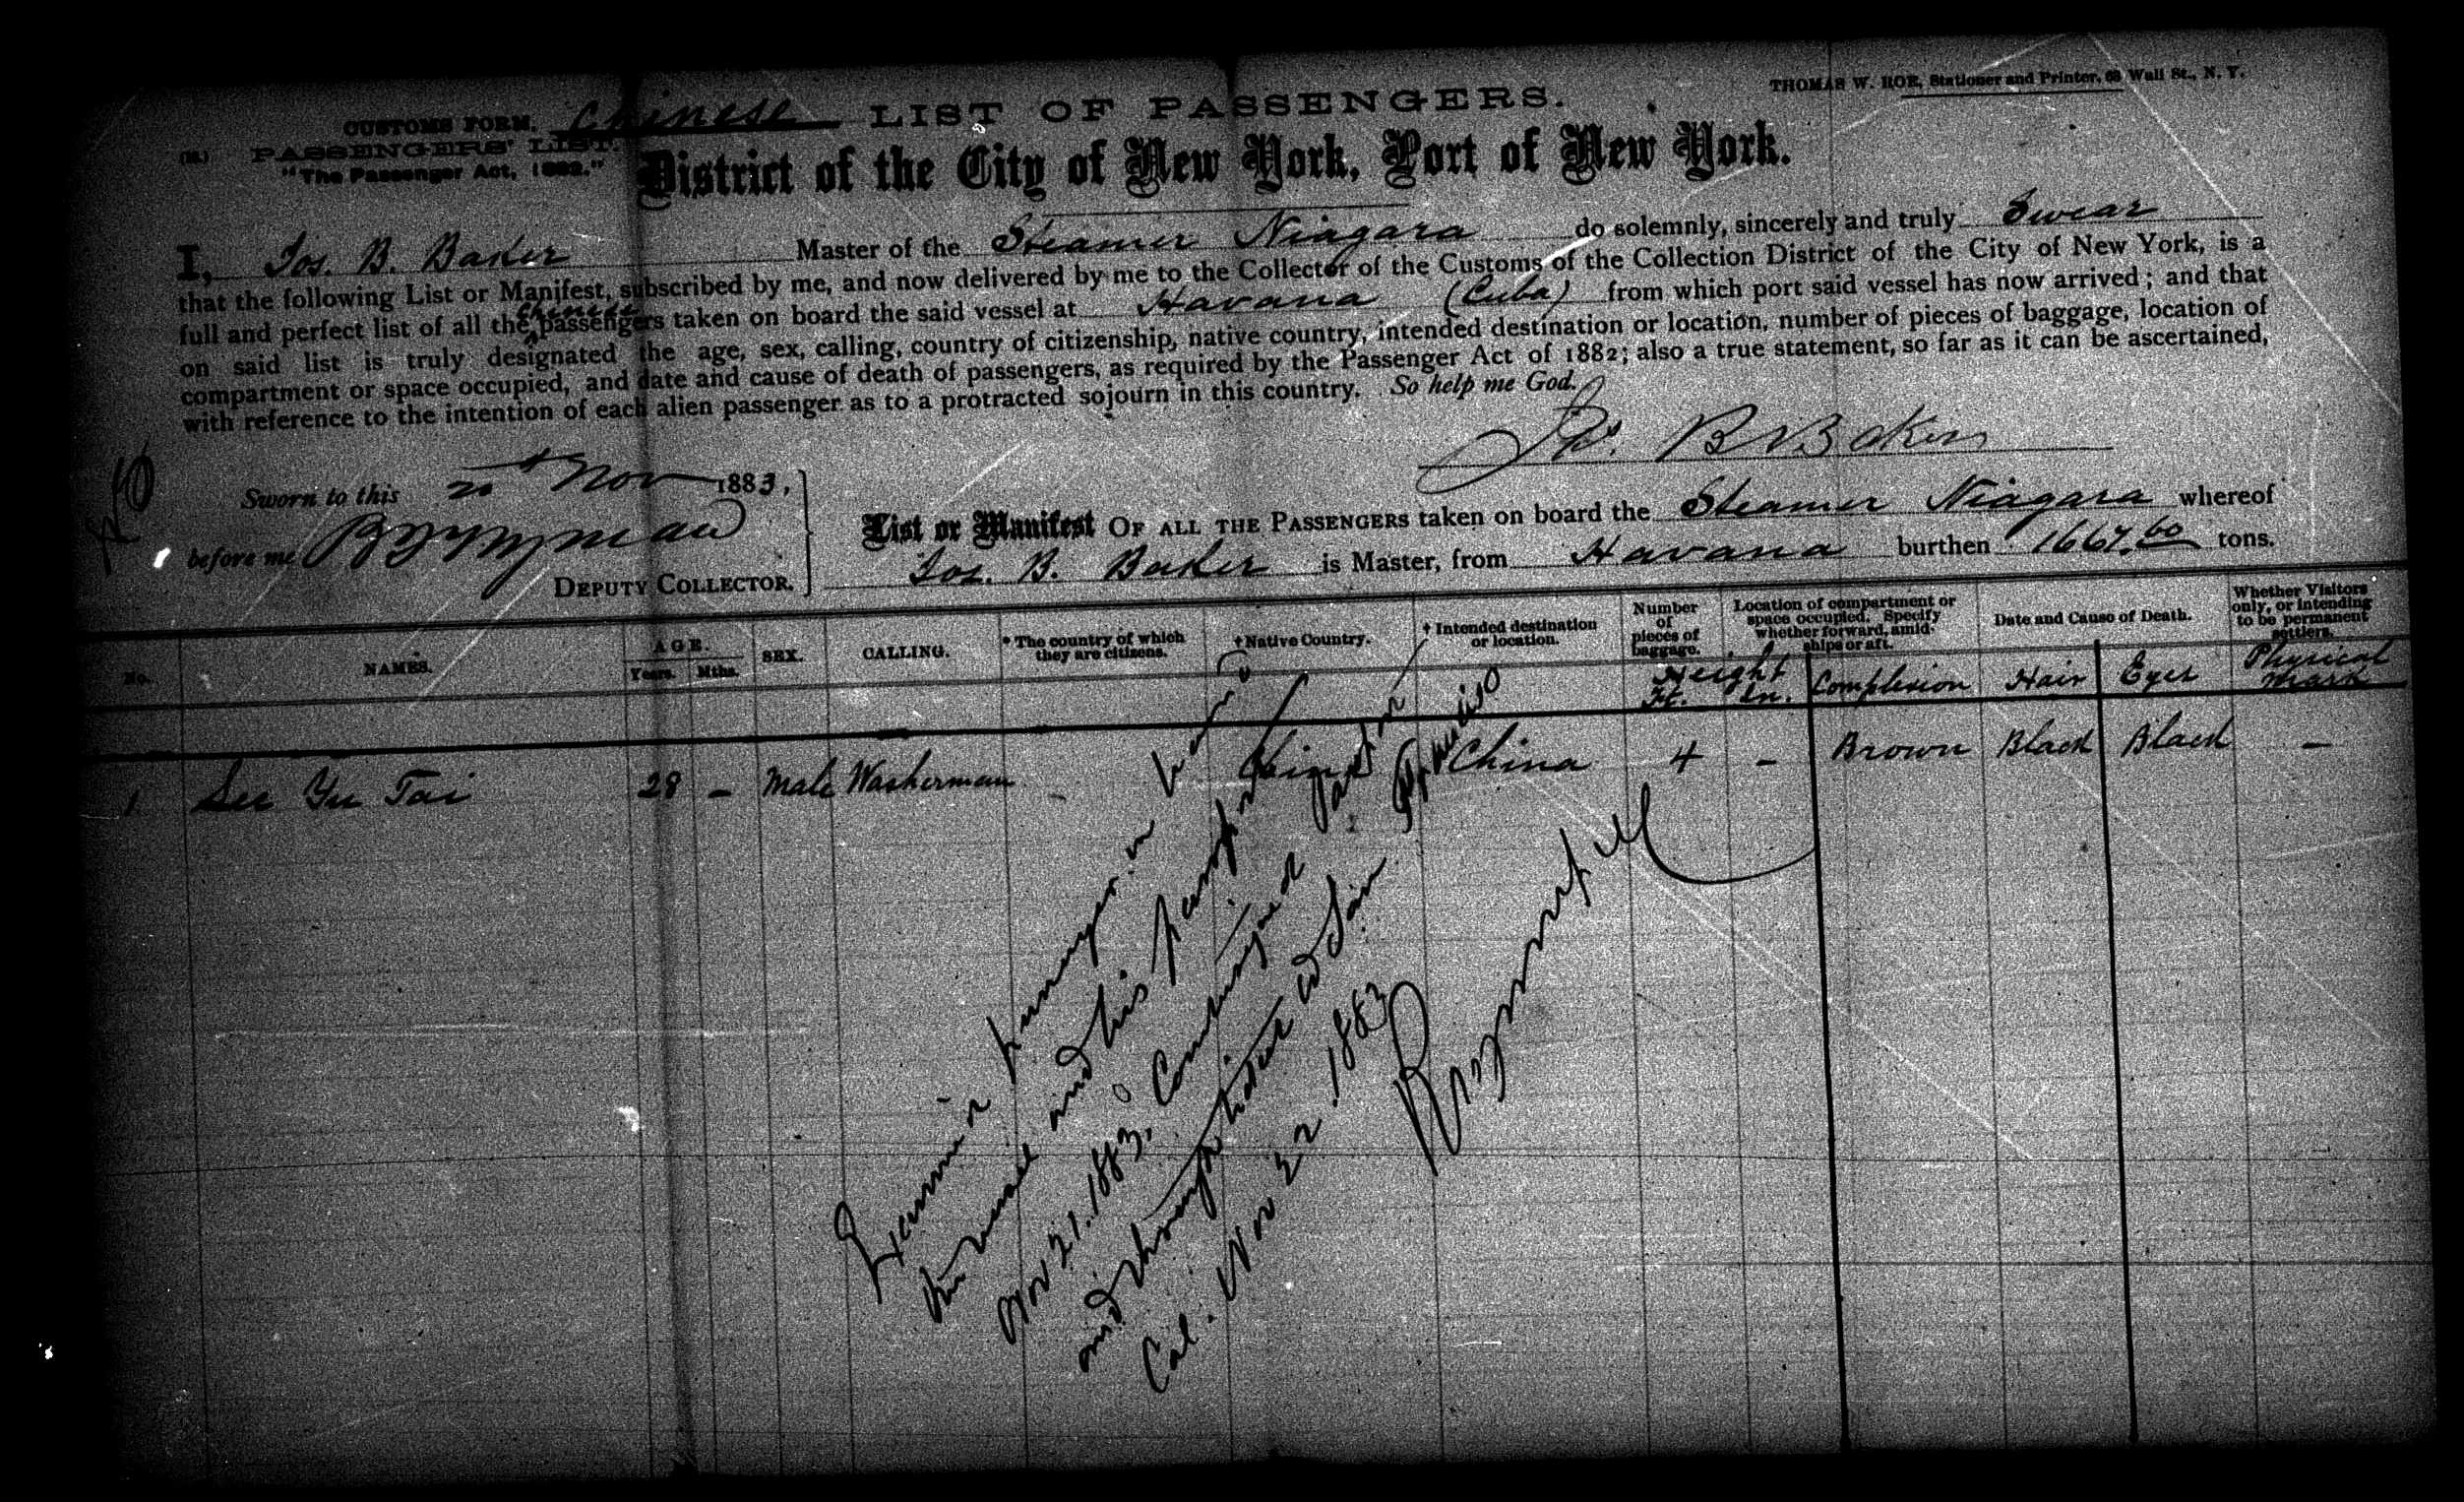 THOMAS W. ROE, Stationer and Printer, 63 Wall St., N. Y.
CUSTOMS FORM. Chinese LIST OF PASSENGERS.
PASSENGERS' LIST.
"The Passenger Act, 1882."
District of the City of New York, Port of New York.
I, Jos. B. Baker Master of the Steamer Niagara do solemnly, sincerely and truly Swear
that the following List or Manifest, subscribed by me, and now delivered by me to the Collector of the Customs of the Collection District of the City of New York, is a
full and perfect list of all the Chinese passengers taken on board the said vessel at Havana (Cuba) from which port said vessel has now arrived; and that
on said list is truly designated the age, sex, calling, country of citizenship, native country, intended destination or location, number of pieces of baggage, location of
compartment or space occupied, and date and cause of death of passengers, as required by the Passenger Act of 1882; also a true statement, so far as it can be ascertained,
with reference to the intention of each alien passenger as to a protracted sojourn in this country. So help me God.
Jos. B Baker
Sworn to this Nov 1883,
before me
DEPUTY COLLECTOR.
List or Manifest OF ALL THE PASSENGERS taken on board the Steamer Niagara whereof
Jos. B. Baker is Master, from Havana burthen 1667.60 tons.
No. NAMES. AGE. Years. Mths. SEX. CALLING. * The country of which they are citizens. † Native Country. † Intended destination or location. Number of pieces of baggage. Location of compartment or space occupied. Specify whether forward, amidships or aft. Date and Cause of Death. Whether Visitors only, or intending to be permanent settlers.
Height Ft. In. Complexion Hair Eyes Physical Mark
1 See Yu Tai 28 – Male Washerman – China China 4 – Brown Black Black –
and his
Nov 21. 1883.
and
Cal. Nov 22. 1883